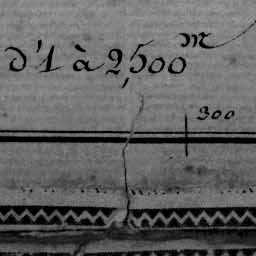 d'1 à 2,500 m
300